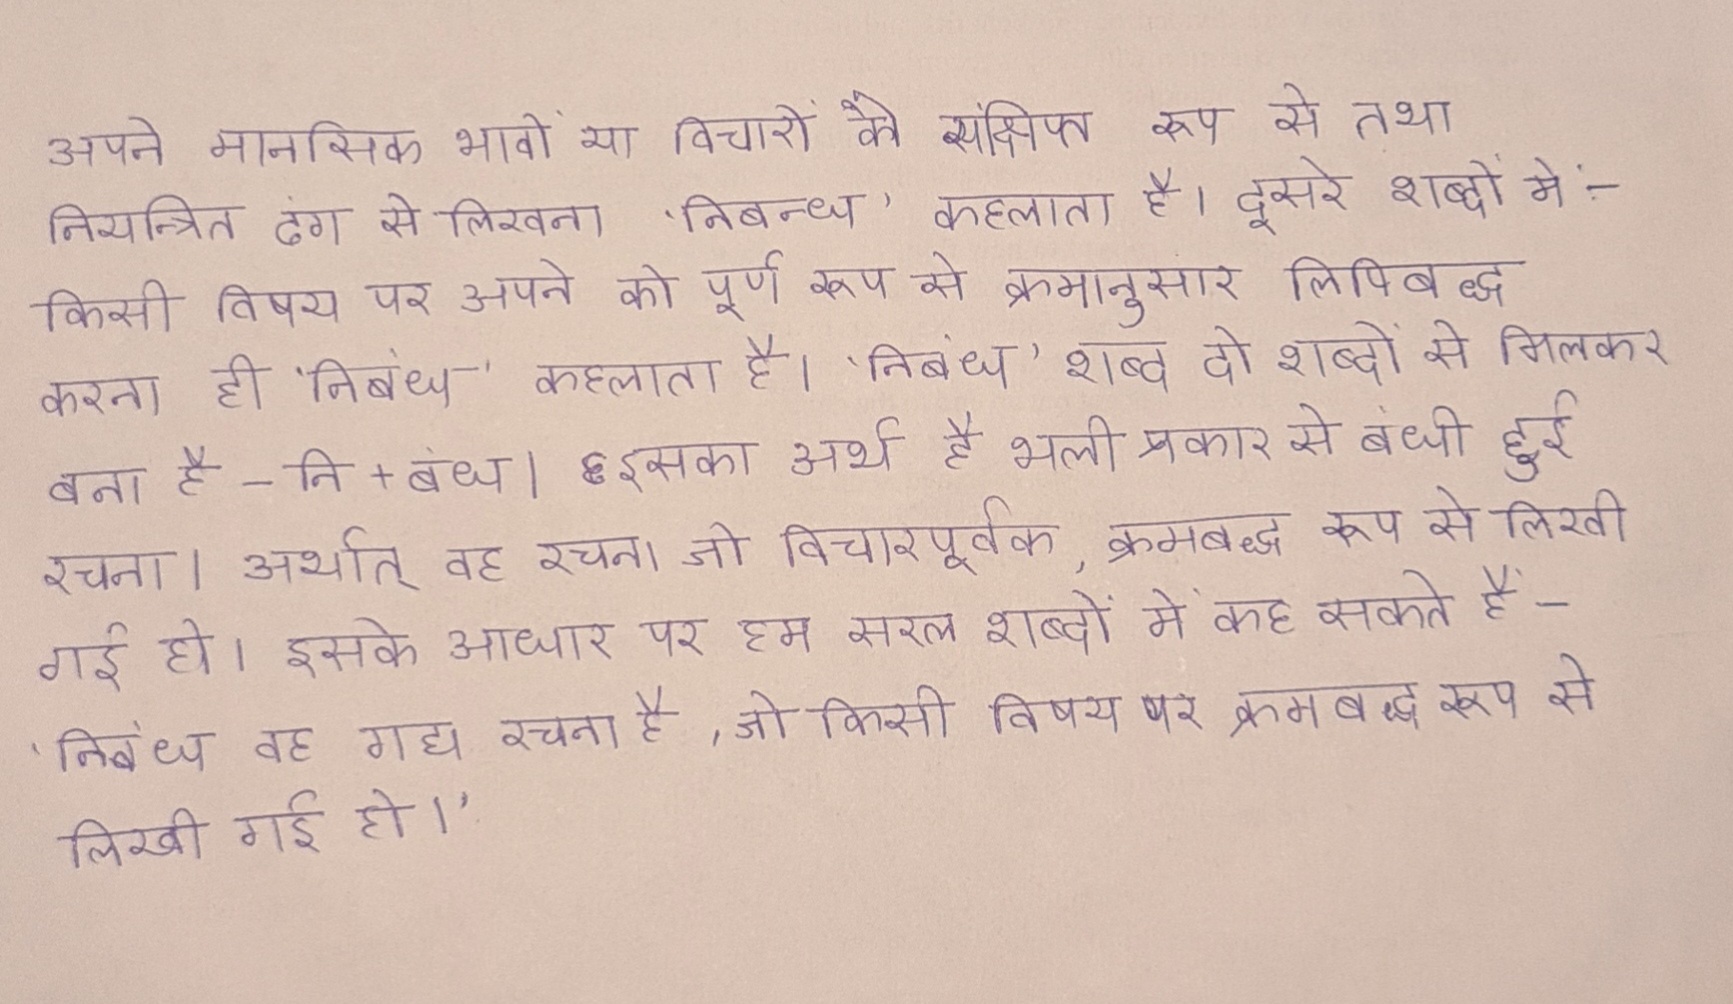 अपने मानसिक भावों या विचारों को संक्षिप्त रूप से तथा
नियन्त्रित ढंग से लिखना 'निबन्ध' कहलाता है। दूसरे शब्दों में :-
किसी विषय पर अपने को पूर्ण रूप से क्रमानुसार लिपिबद्ध
करना ही 'निबंध' कहलाता है। 'निबंध' शब्द दो शब्दों से मिलकर
बना है - नि + बंध। इसका अर्थ है भली प्रकार से बंधी हुई
रचना। अर्थात् वह रचना जो विचारपूर्वक, क्रमबद्ध रूप से लिखी
गई हो। इसके आधार पर हम सरल शब्दों में कह सकते हैं -
'निबंध वह गद्य रचना है, जो किसी विषय पर क्रमबद्ध रूप से
लिखी गई हो।'